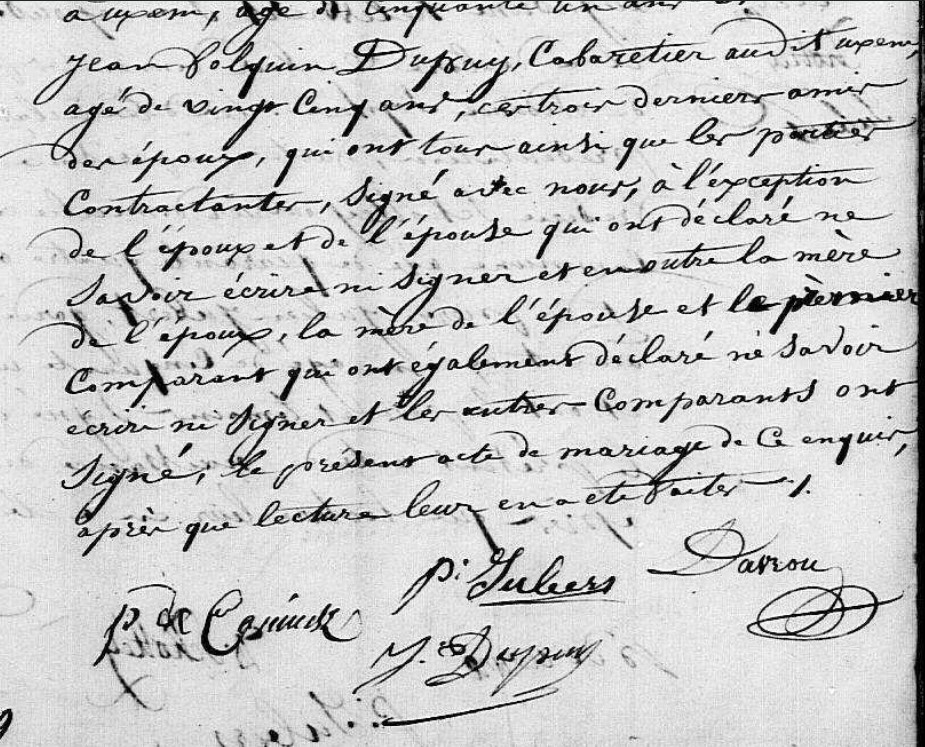 a uxem, agé de Cinquante un ans et
jean folquin Dupuy, Cabaretier audit uxem,
agé de vingt Cinq ans, ces trois derniers amis
des époux, qui ont tous ainsi que les parties
Contractantes, Signé avec nous, à l'éxception
de l'époux et de l'épouse qui ont déclaré ne
Savoir écrire ni Signer et en outre la mère
de l'époux, la mère de l'épouse et le premier
Comparant qui ont également déclaré ne Savoir
ecrire ni Signer et les autres Comparants ont
Signé, le present acte de mariage de Ce enquis,
après que lecture leur en a eté faite ./.
p. de Coninck
p. Juliers
Davrou
J. Dupuy